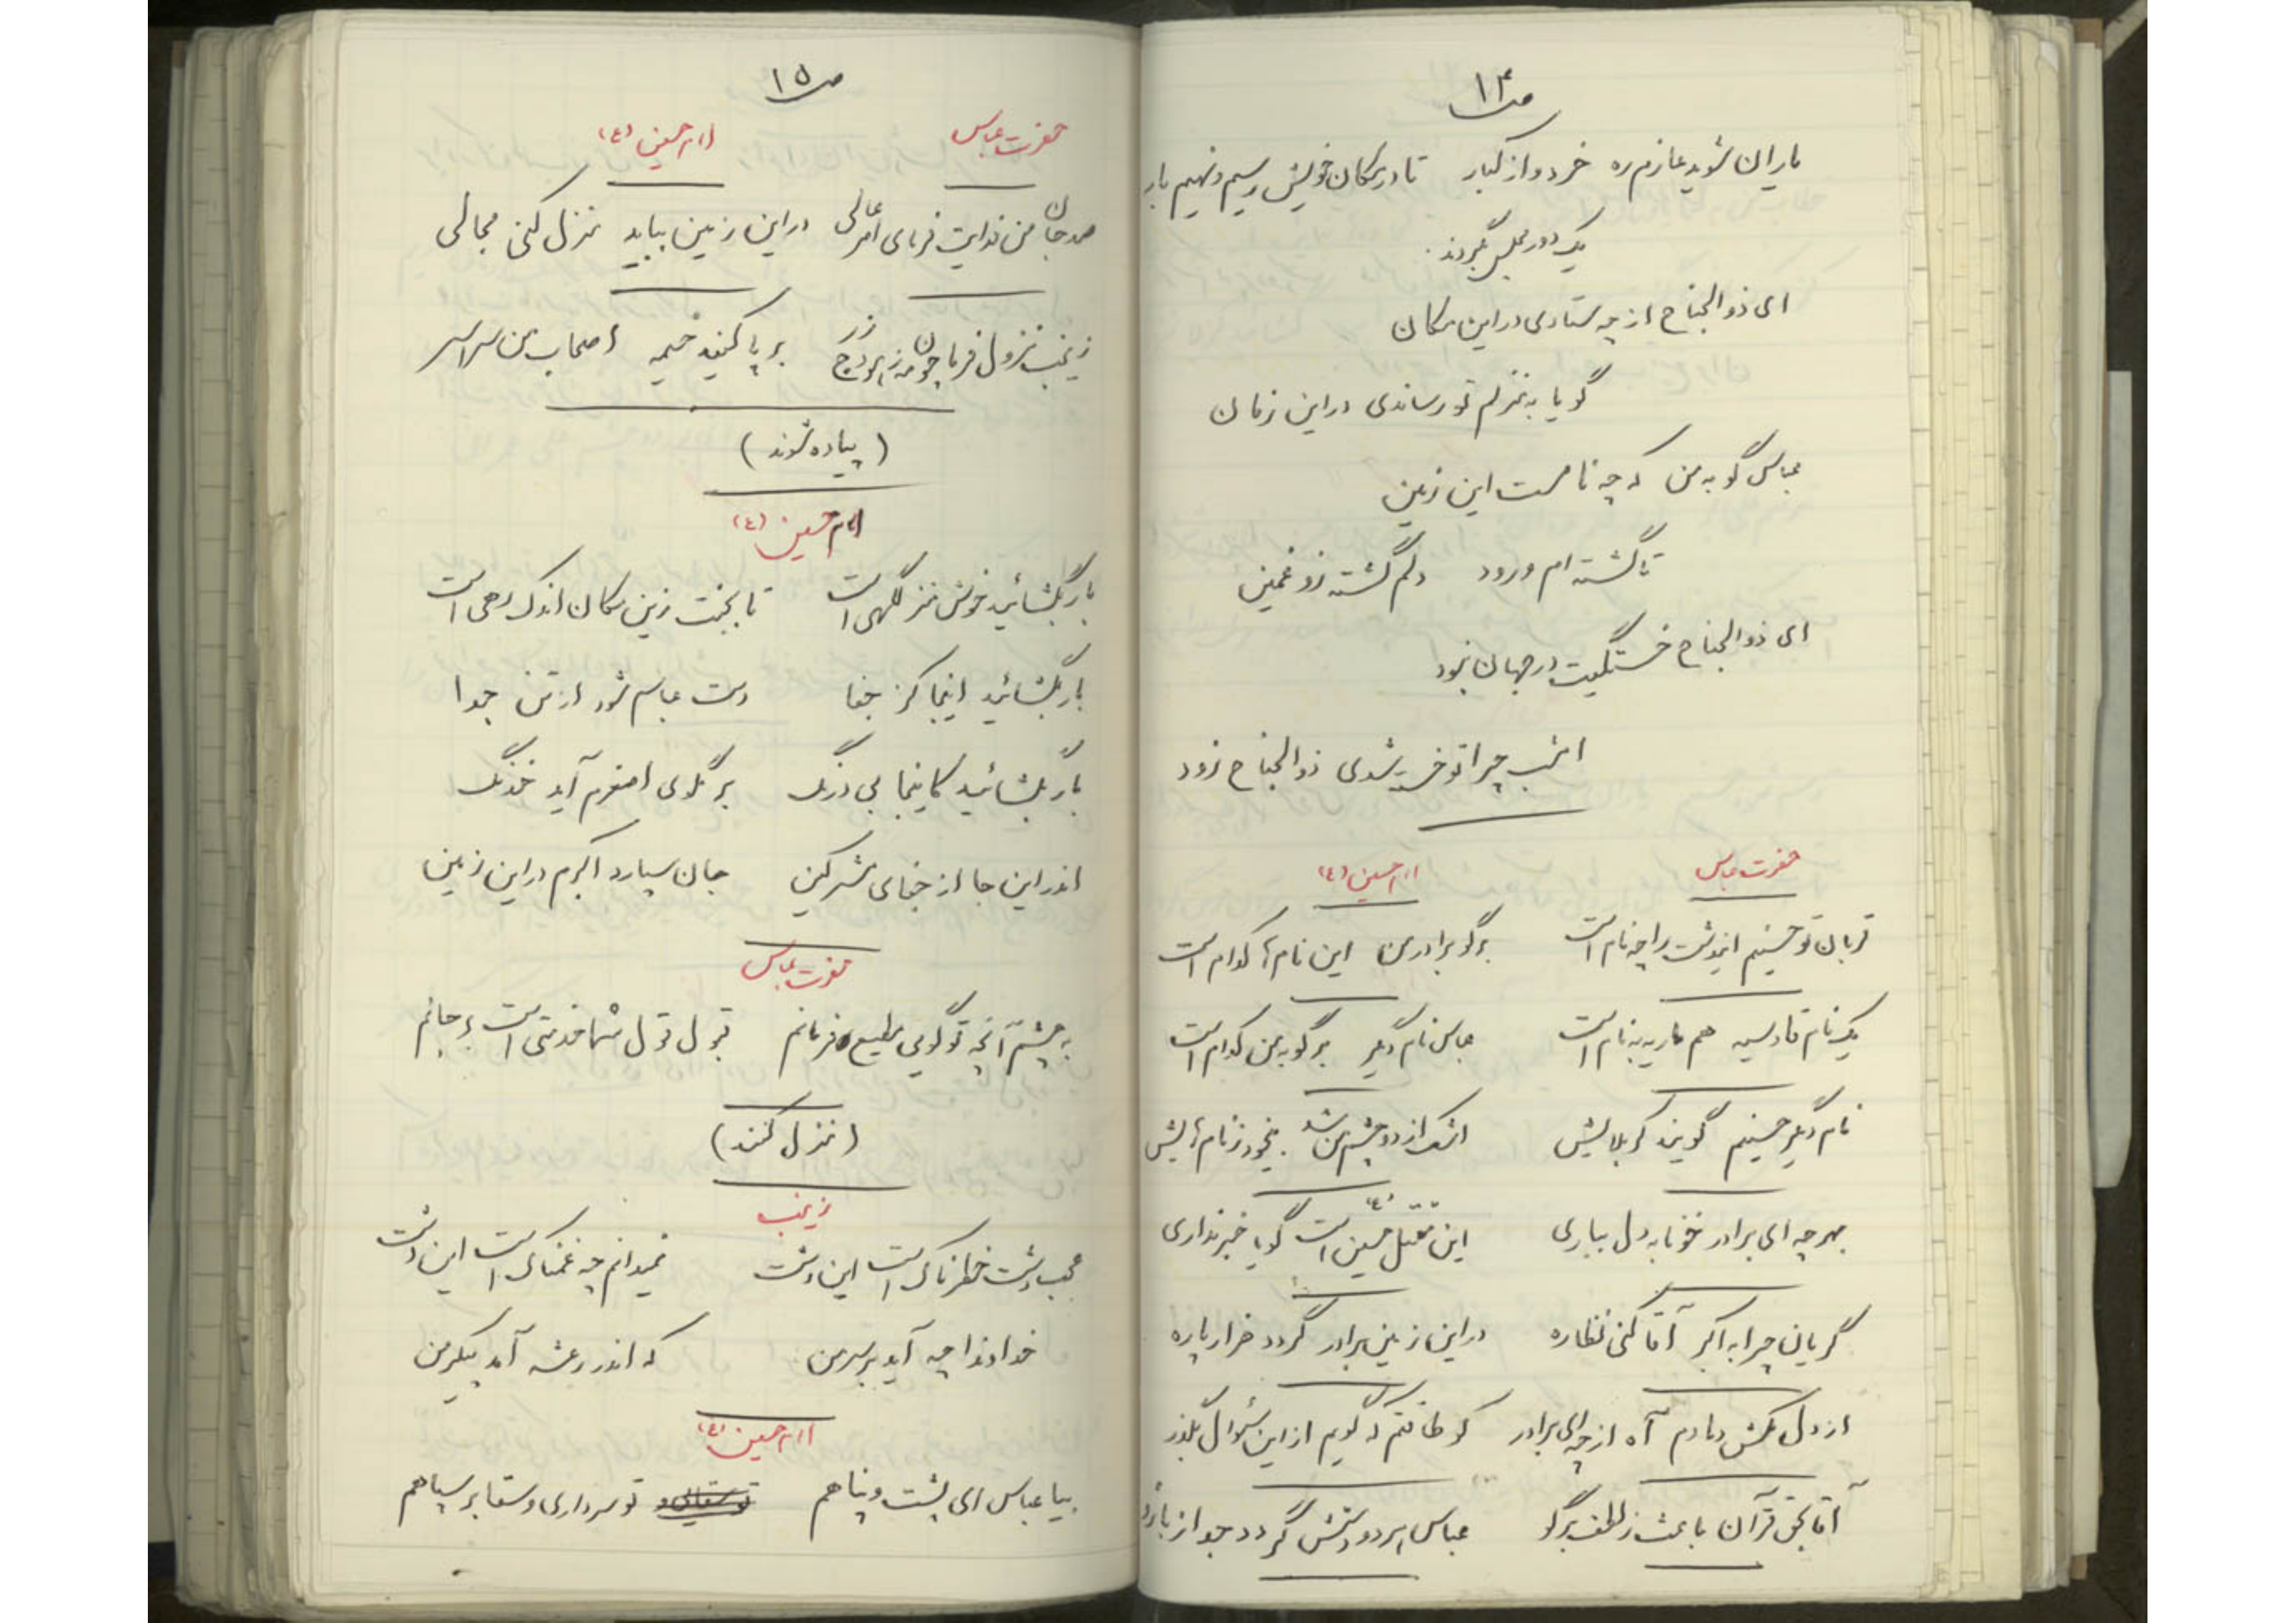 ص ۱۴
یاران شوید عازم ره خرد و از کبار تا در مکان خویش رسیم و نهیم بار
یک دور مجلس بگردند.
ای ذوالجناح از چه ستادی در این مکان
گویا به منزلم تو رساندی در این زمان
عباس گو به من که چه نامست این زمین
تا گشته ام ورود دلم گشته زو غمین
ای ذوالجناح خستگیت در جهان نبود
امشب چرا تو خسته شدی ذوالجناح زود
حضرت عباس امام حسین (ع)
قربان تو حسینم ایندشت را چه نام است برگو برادر من این نام ها کدام است
یک نام قادسیه هم ماریه بنام است عباس نام دیگر برگو به من کدام است
نام دیگر حسینم گویند کربلایش اشک از دو چشم من شد بیخود ز نام هایش
بهر چه ای برادر خونابه دل بباری این مقتل حسین است گویا خبر نداری
گریان چرا به اکبر آقا کنی نظاره در این زمین برادر گردد هزار پاره
از دل مکش دمادم آه از چه ای برادر کو طاقتم که گویم از این سؤال بگذر
آقا بحق قرآن باعث ز لطف برگو عباس هر دو دستش گردد جدا ز بازو
ص ۱۵
حضرت عباس امام حسین (ع)
صد جان من فدایت فرمای امر عالی در این زمین بباید منزل کنی مجالی
زینب نزول فرما چون مه ز برج زر بر پا کنید خیمه اصحاب من سراسر
(پیاده شوند)
امام حسین (ع)
بار بگشائید خوش منزلگهی است تا بجنت زین مکان اندک رهی است
بار بگشائید اینجا کز جفا دست عباسم شود از تن جدا
بار بگشائید کاینجا بی درنگ بر گلوی اصغرم آید خدنگ
اندر این جا از جفای مشرکین جان سپارد اکبرم در این زمین
حضرت عباس
به چشم آنچه تو گویی مطیع فرمانم قبول قول شما خدمتی است بر جانم
(منزل کنند)
زینب
عجب دشت خطرناک است این دشت نمیدانم چه غمناک است این دشت
خداوندا چه آید بر سر من که اندر رعشه آمد پیکر من
امام حسین (ع)
بیا عباس ای پشت و پناهم تو سرداری و سقا بر سپاهم